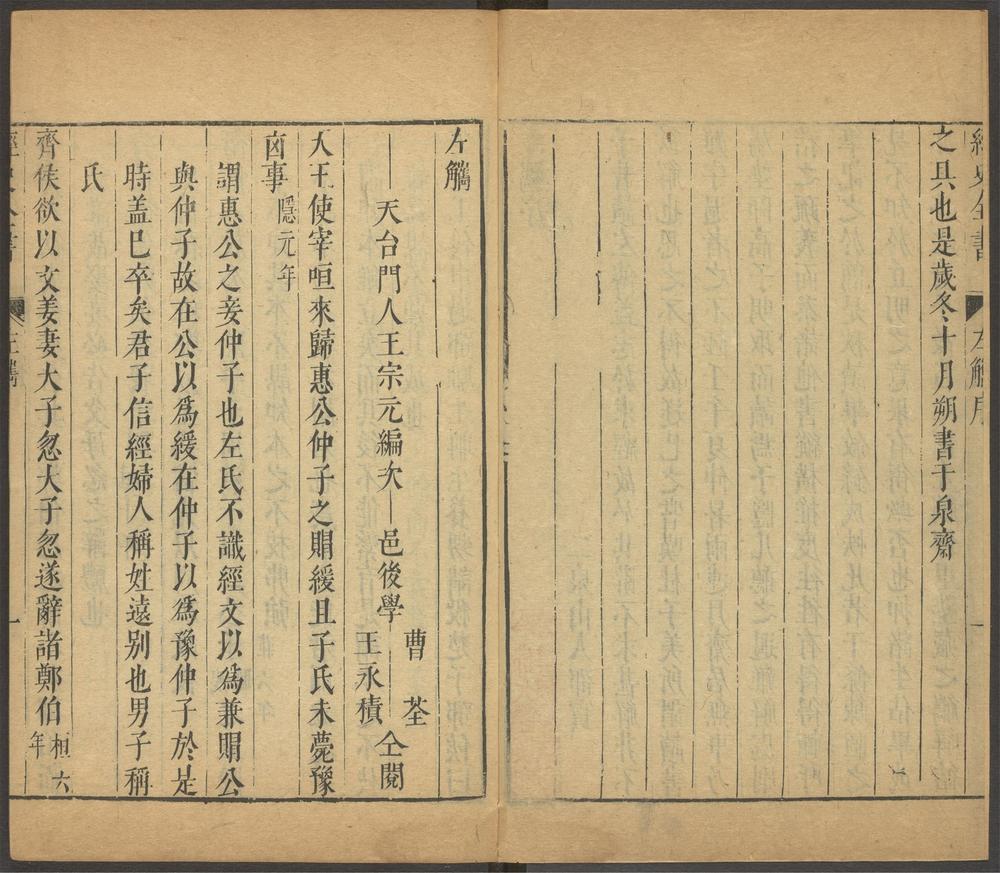 經史全書
左觿序
一
之具也是歲冬十月朔書于泉齋
左觿
天台門人王宗元編次
邑後學
曹荃
王永積
仝閱
天王使宰咺來歸惠公仲子之賵緩且子氏未薨豫
凶事隱元年
謂惠公之妾仲子也左氏不識經文以爲兼賵公
與仲子故在公以爲緩在仲子以爲豫仲子於是
時盖巳卒矣君子信經婦人稱姓遠别也男子稱
氏
齊侯欲以文姜妻大子忽大子忽遂辭諸鄭伯桓六年
左觿
一